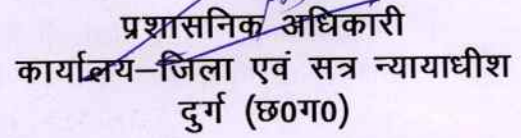 प्रशासनिक अधिकारी
कार्यालय–जिला एवं सत्र न्यायाधीश
दुर्ग (छ0ग0)